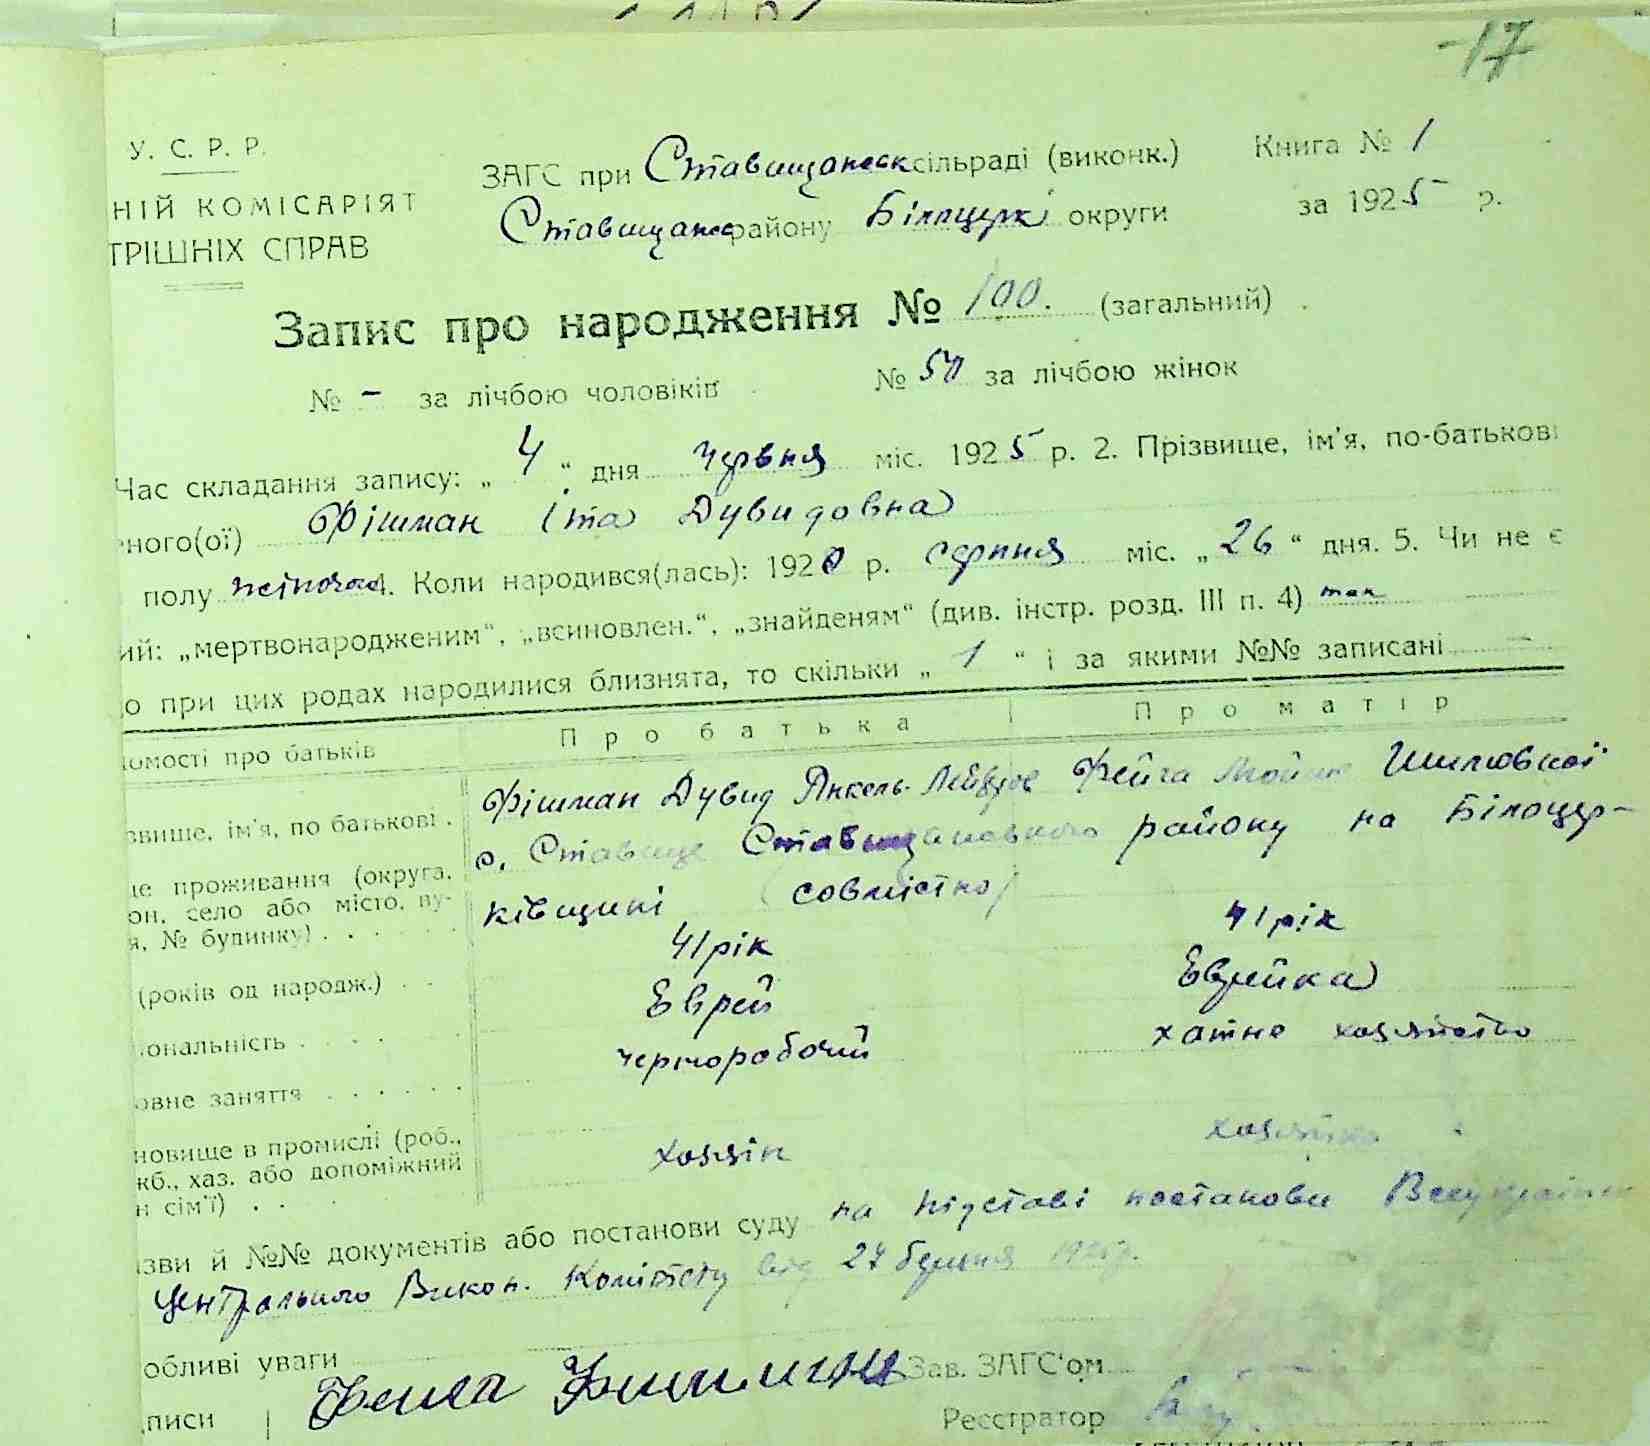 -17
У. С. Р. Р.
ЗАГС при Ставищанськ сільраді (виконк.) Книга № 1
НІЙ КОМІСАРІЯТ
Ставищанс району Білоцерк округи за 1925 р.
ТРІШНІХ СПРАВ
Запис про народження № 100. (загальний)
№ - за лічбою чоловіків № 50 за лічбою жінок
Час складання запису: „ 4 “ дня червня міс. 1925 р. 2. Прізвище, ім'я, по-батькові
ного(ої) Фішман Іта Дувидовна
полу жіночої 4. Коли народився(лась): 1920 р. серпня міс. „ 26 “ дня. 5. Чи не є
ий: „мертвонародженим“, „всиновлен.“, „знайденям“ (див. інстр. розд. III п. 4) так
о при цих родах народилися близнята, то скільки „ 1 “ і за якими №№ записані —
омості про батьків Про батька Про матір
звище, ім'я, по батькові . Фішман Дувид Янкель- Фейга Шимовної
це проживання (округа, с. Ставище Ставищанського району на Білоцер-
он, село або місто, ву- ківщині (совмістно)
я, № будинку) . . . . .
(років од народж.) . . 41 рік 41 рік
ональність . . . . Еврей Еврейка
овне заняття . . . . . . чернорабочий хатне хозяйство
новище в промислі (роб.,
жб., хаз. або допоміжний хозяін хозяйка
н сім'ї) . .
зви й №№ документів або постанови суду на підставі постанови Всеукраїнс
Центрального Викон. Комітету від 27 березня 1925 р.
обливі уваги
Зав. ЗАГС'ом
писи Фишман
Реєстратор